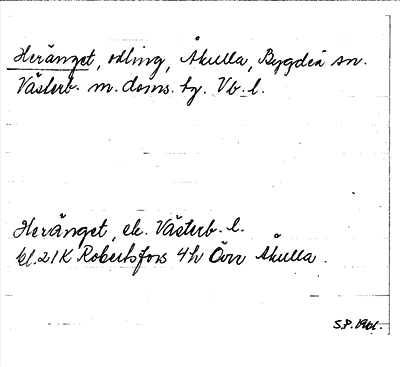 Heränget, odling, Åkulla, Bygdeå sn.
Västerb. m. doms. tg. Vb. l.
Heränget, ek. Västerb. l.
bl. 21K Robertsfors 4h Övre Åkulla.
S.P.